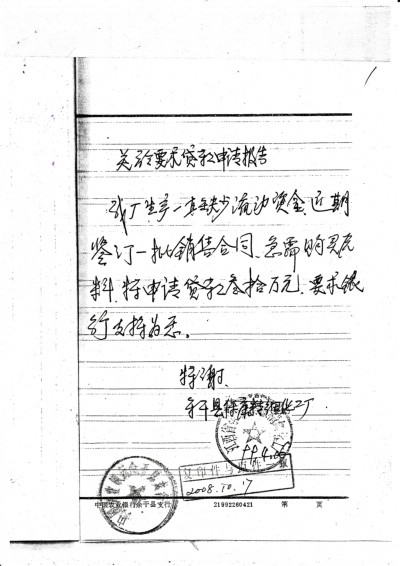 关于要求贷款申请报告
我厂生产一直缺少流动资金、近期
签订一批销售合同、急需购买原
料、特申请贷款叁拾万元、要求银
行支持为盼。
特谢、
余干县
复印件与原件
2008.10.17
中国农业银行余干县支行 21992260421 第 页